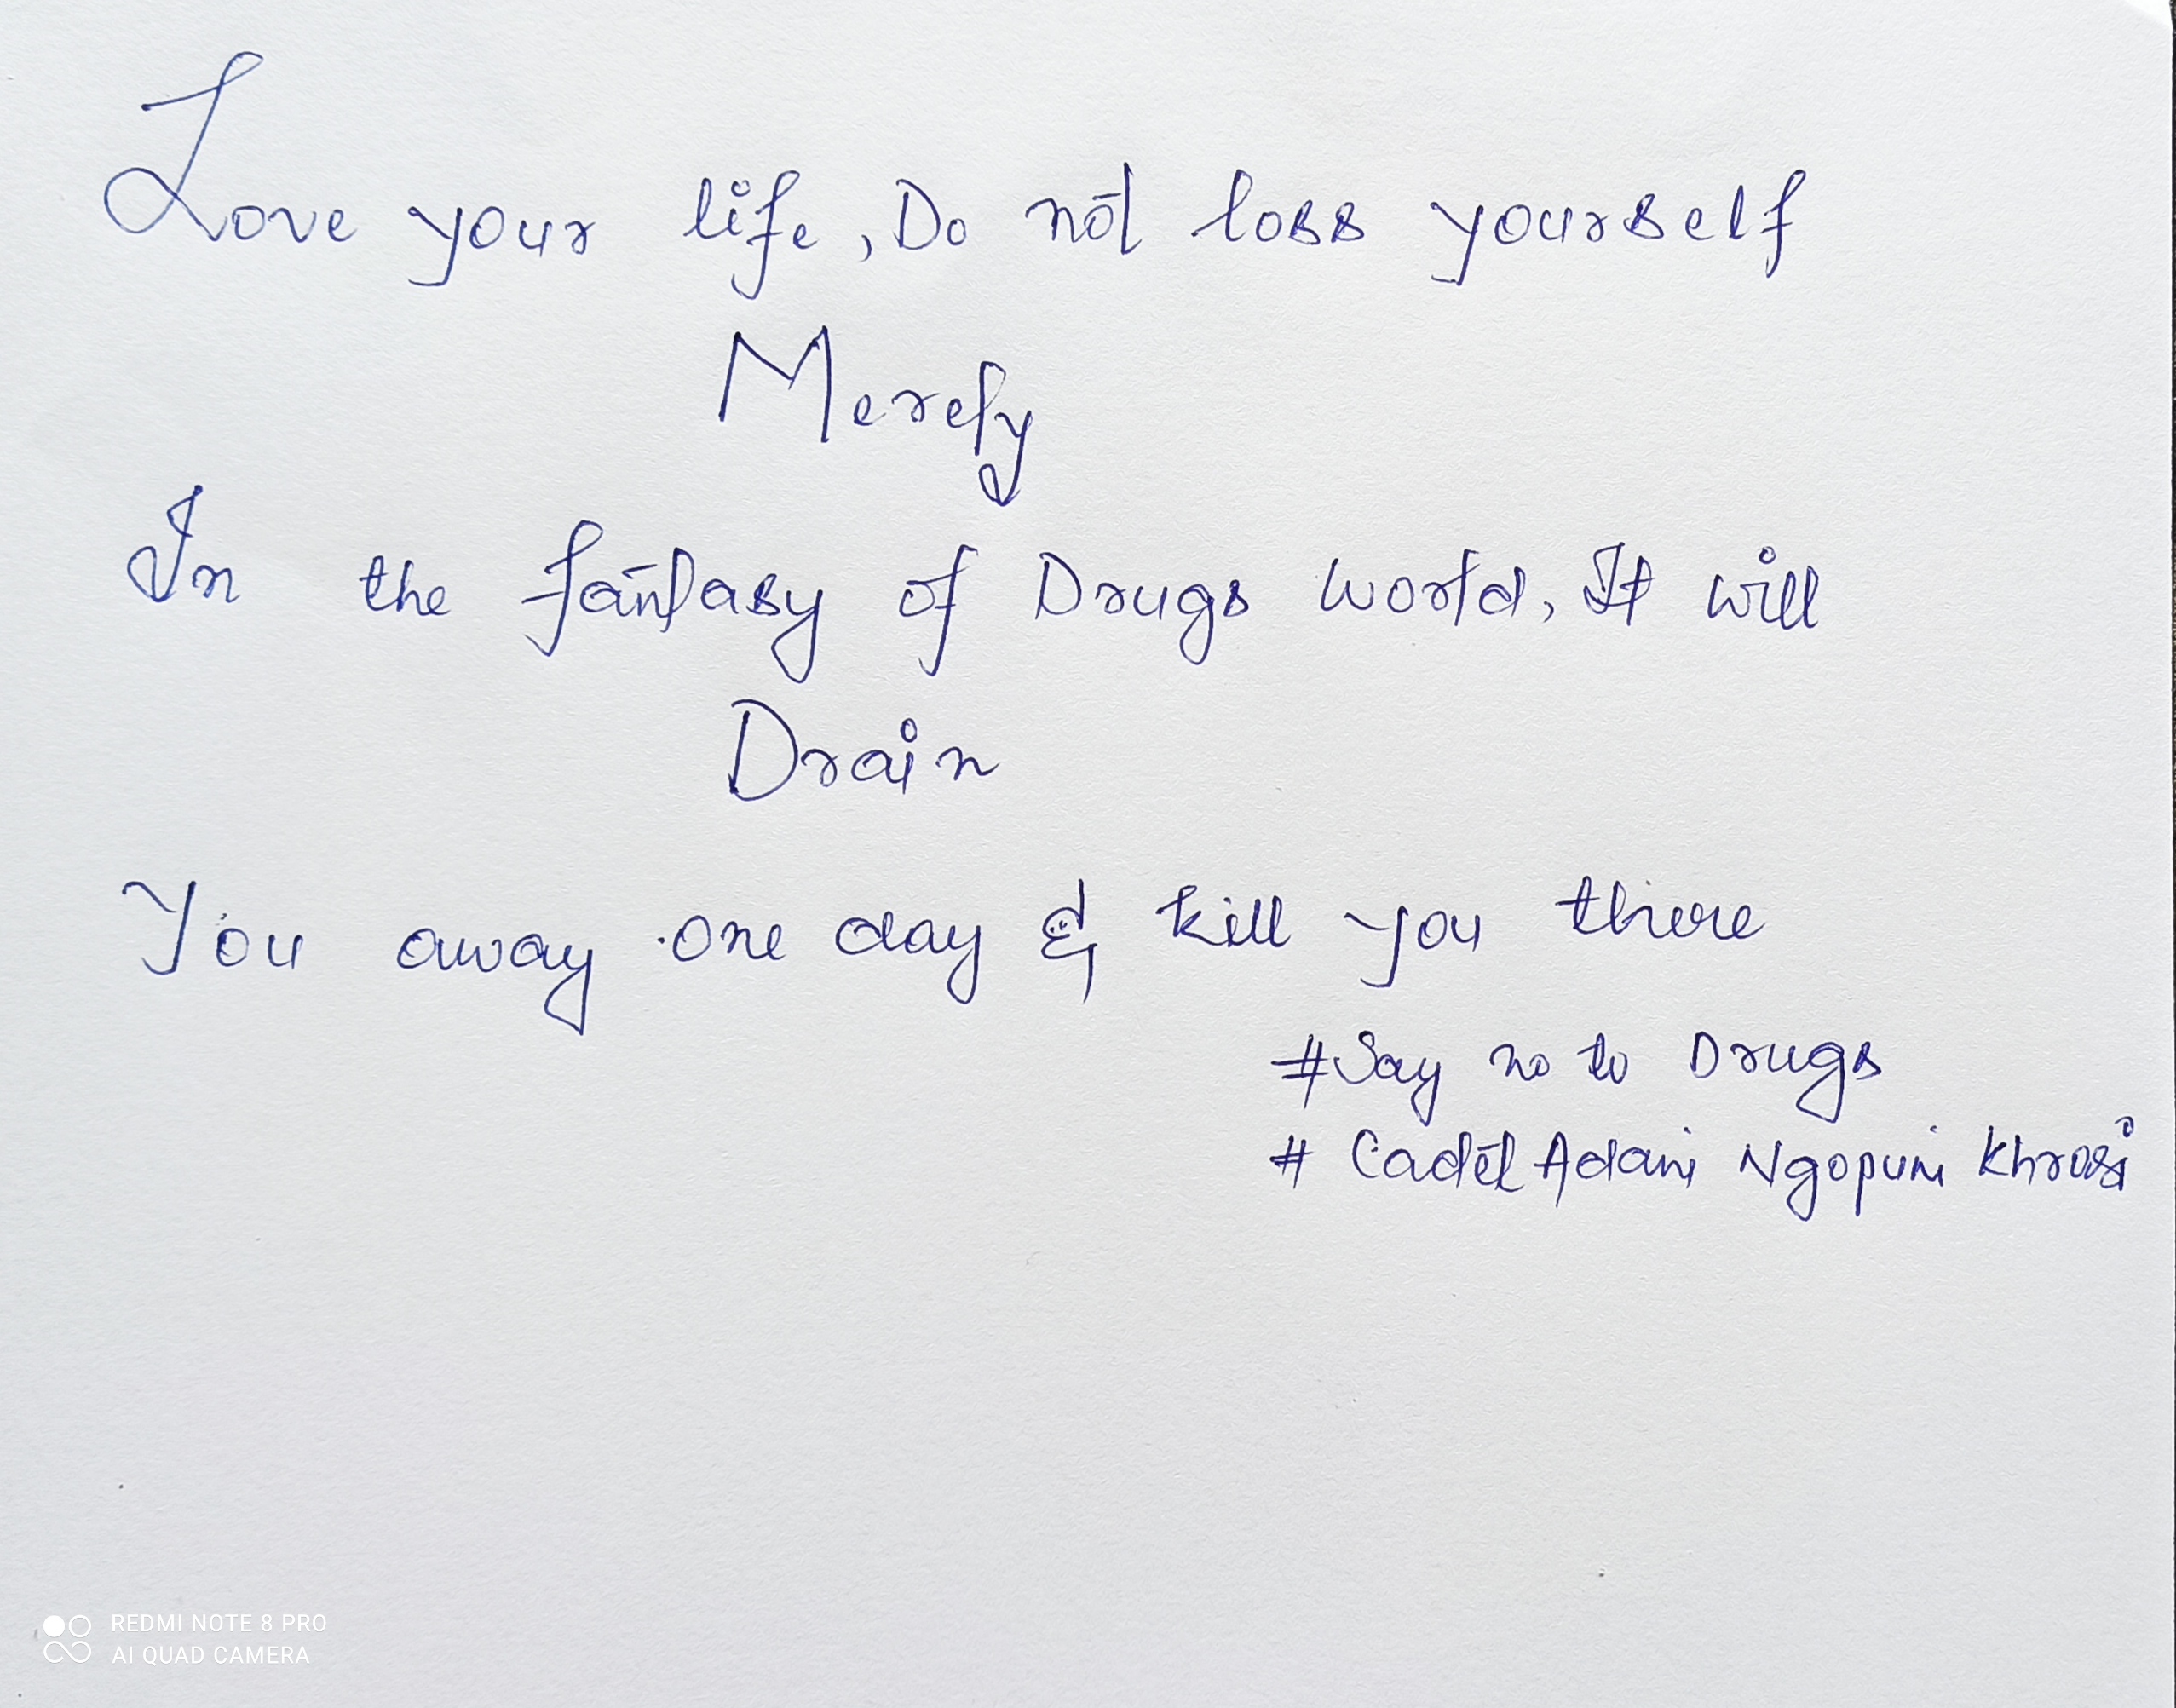 Love your life, Do not loss yourself
Merely
In the fantasy of Drugs world, It will
Drain
You away one day & kill you there
#Say no to Drugs
# Cadet Adani Ngopuni Khrasi
REDMI NOTE 8 PRO
AI QUAD CAMERA